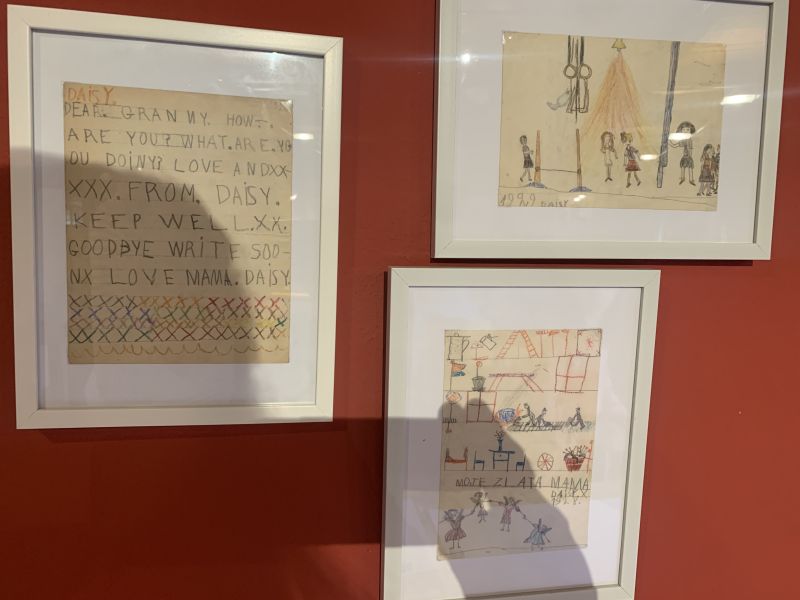 DAISY.
DEAR. GRANNY. HOW.
ARE YOU? WHAT. ARE. YO
OU DOINY? LOVE ANDXX
XXX. FROM. DAISY.
KEEP WELL.XX.
GOODBYE WRITE SOO-
NX LOVE MAMA. DAISY.
DAISY.
MOJE ZLATA MAMA